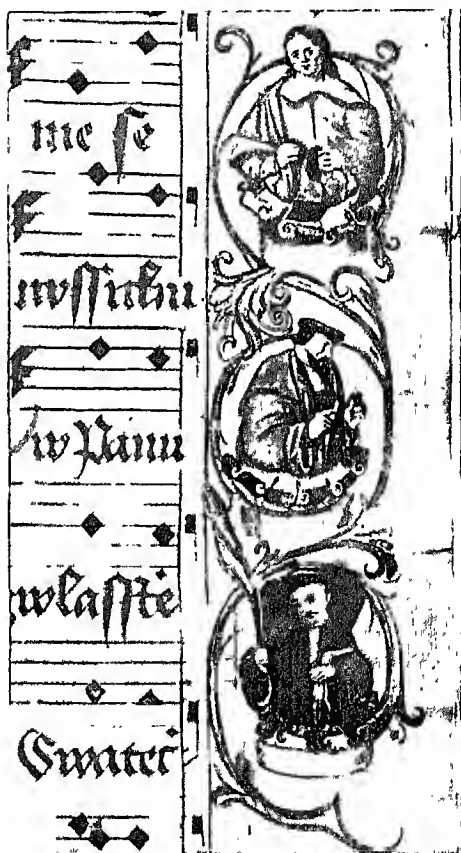 me se
wssickni
w Panu
wlasstě
Swateč